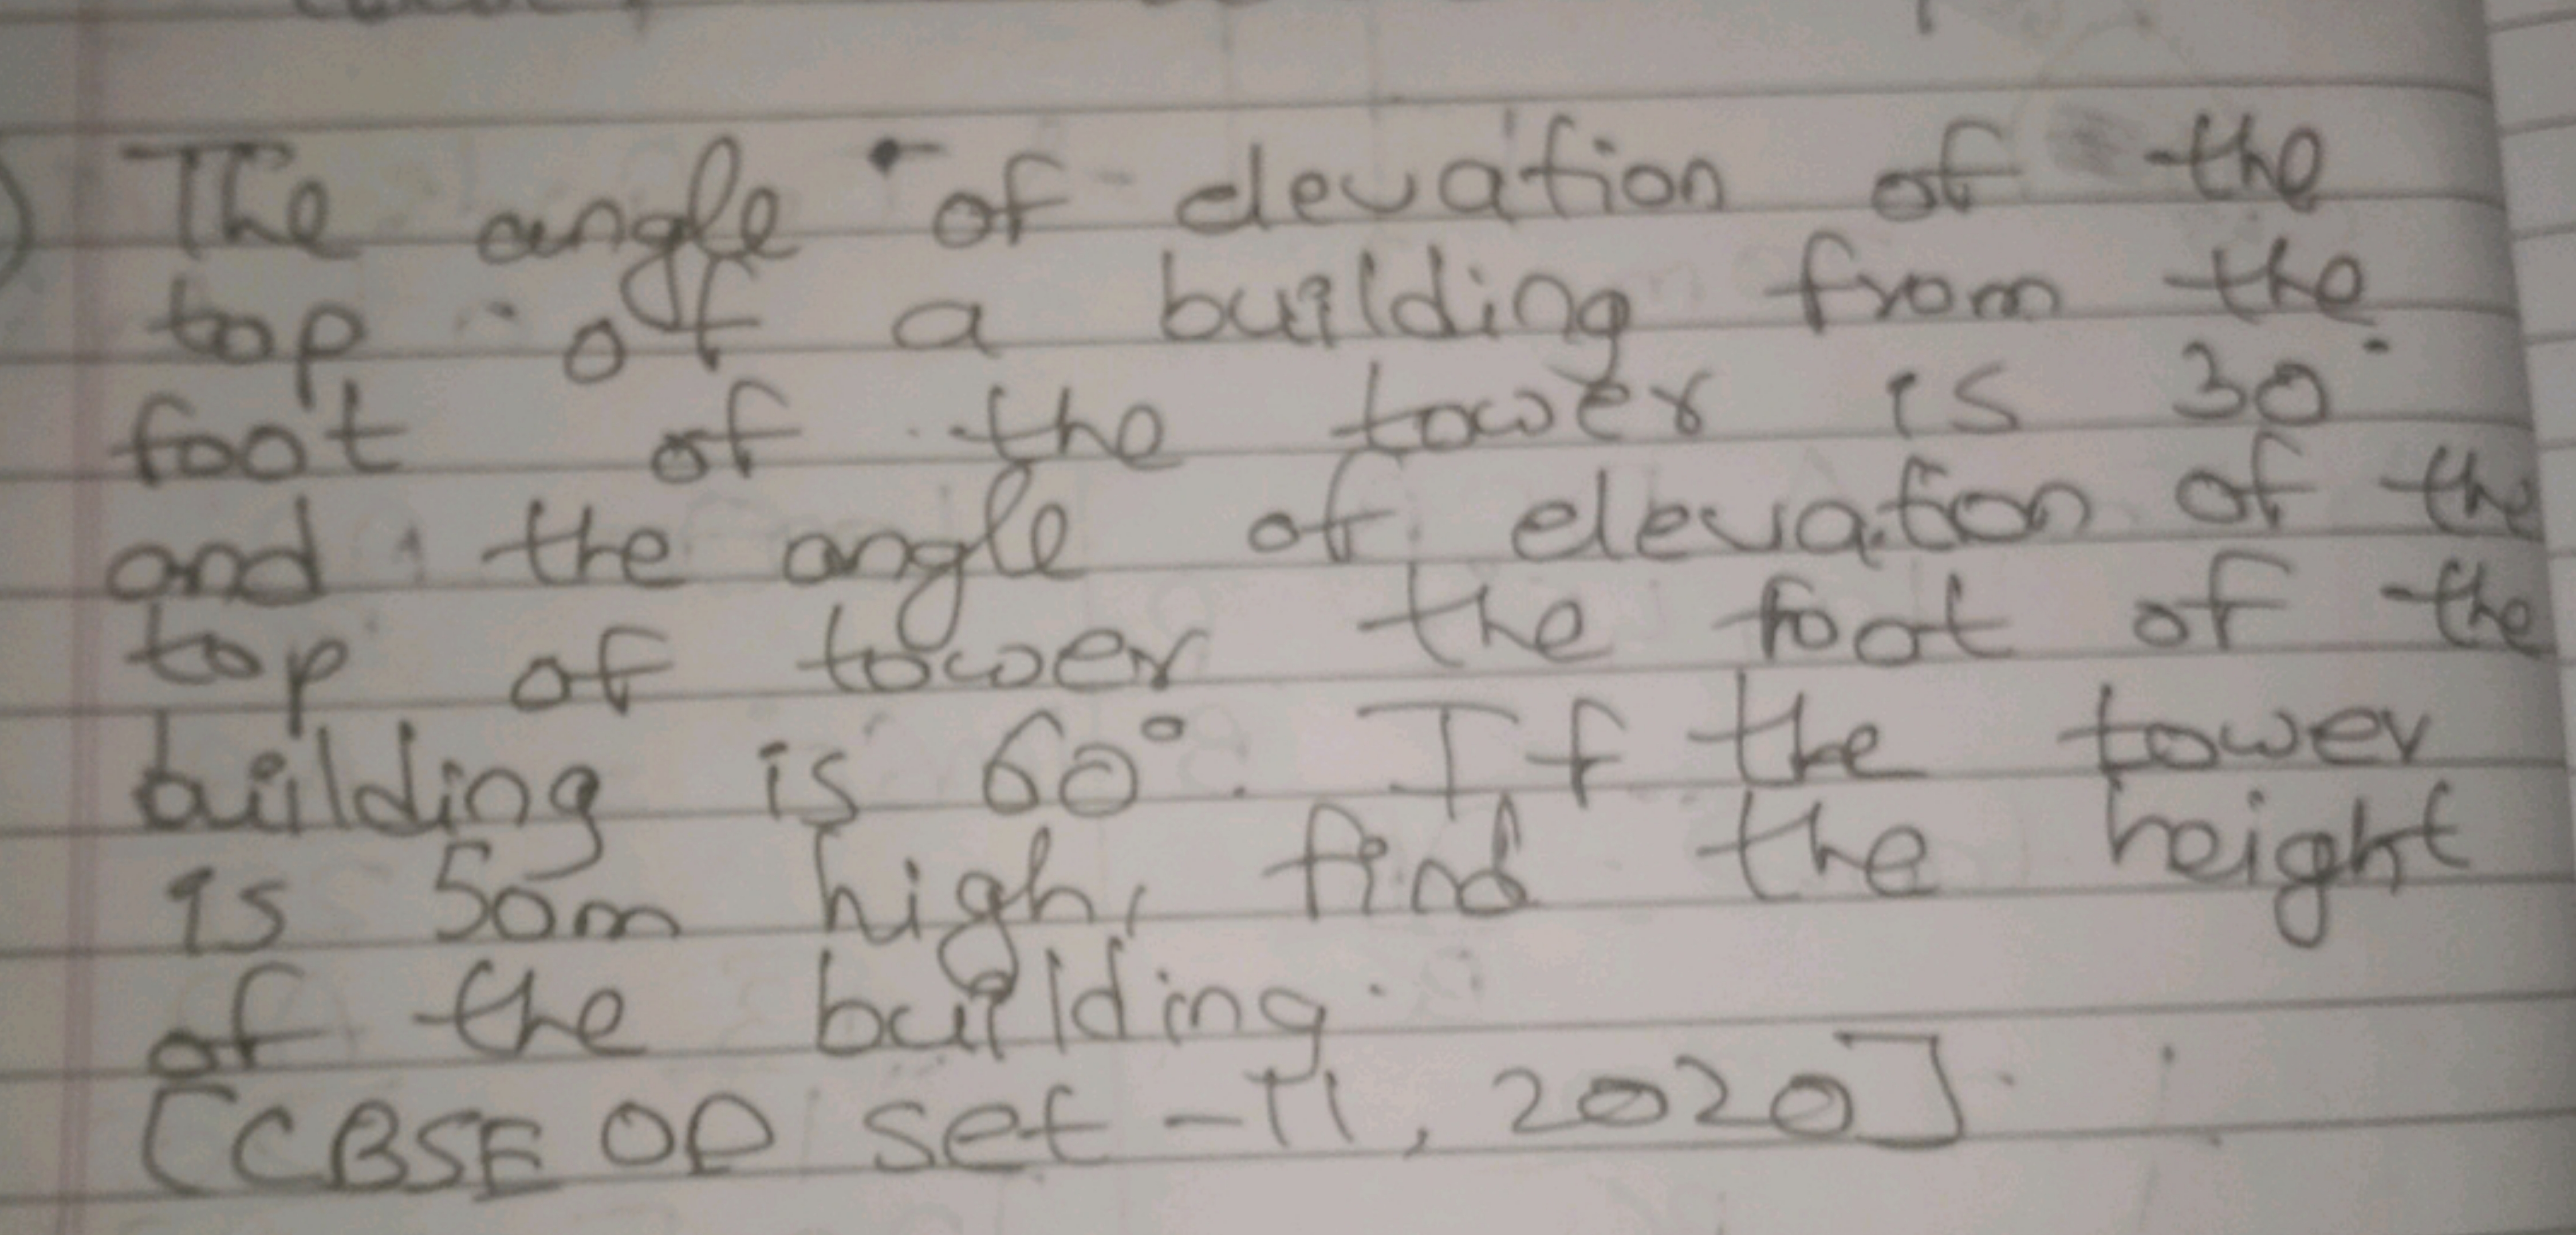 The angle of elevation of the
top of a building from the
foot of the tower is 30°
and the angle of elevaton of the
top of tower the foot of the
building is 60°. If the tower
is 50m high, find the height
of the building.
[CBSE OD set - II, 2020]